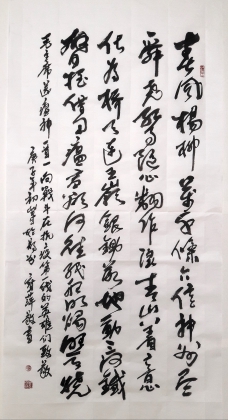 春風楊柳萬千條六億神州盡
舜堯紅雨隨心翻作浪青山着意
化為橋天連五嶺銀鋤落地動三河鐵
臂搖借問瘟君欲何往紙船明燭照天燒
毛主席送瘟神一首向戰斗在抗疫第一線的英雄們致敬
庚子年初